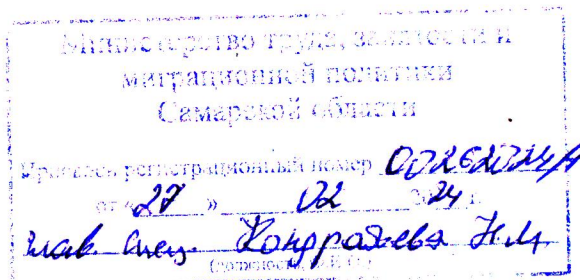 Министерство труда, занятости и
миграционной политики
Самарской области
Присвоен регистрационный номер
от «27» 02 2024 г.
глав. спец. Кондратьева Н.М.
(должность, Ф.И.О.)